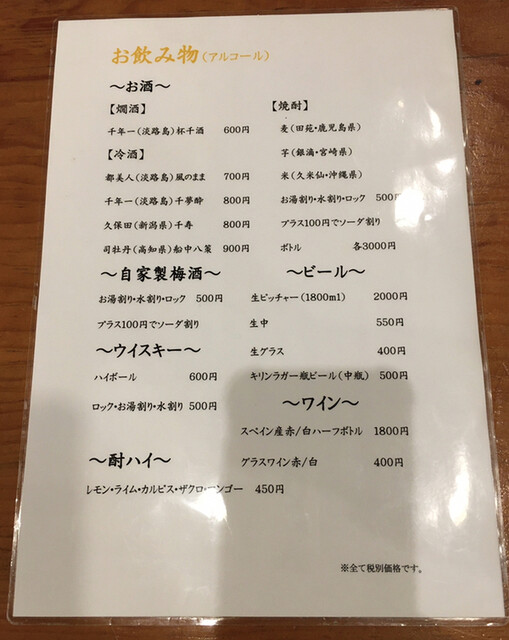 お飲み物(アルコール)
～お酒～
【燗酒】
千年一(淡路島)杯千酒 600円
【冷酒】
都美人(淡路島)風のまま 700円
千年一(淡路島)千夢酔 800円
久保田(新潟県)千寿 800円
司牡丹(高知県)船中八策 900円
【焼酎】
麦(田苑・鹿児島県)
芋(銀滴・宮崎県)
米(久米仙・沖縄県)
お湯割り・水割り・ロック 500円
プラス100円でソーダ割り
ボトル 各3000円
～自家製梅酒～
お湯割り・水割り・ロック 500円
プラス100円でソーダ割り
～ウイスキー～
ハイボール 600円
ロック・お湯割り・水割り 500円
～酎ハイ～
レモン・ライム・カルピス・ザクロ・マンゴー 450円
～ビール～
生ピッチャー(1800ml) 2000円
生中 550円
生グラス 400円
キリンラガー瓶ビール(中瓶) 500円
～ワイン～
スペイン産赤/白ハーフボトル 1800円
グラスワイン赤/白 400円
※全て税別価格です。